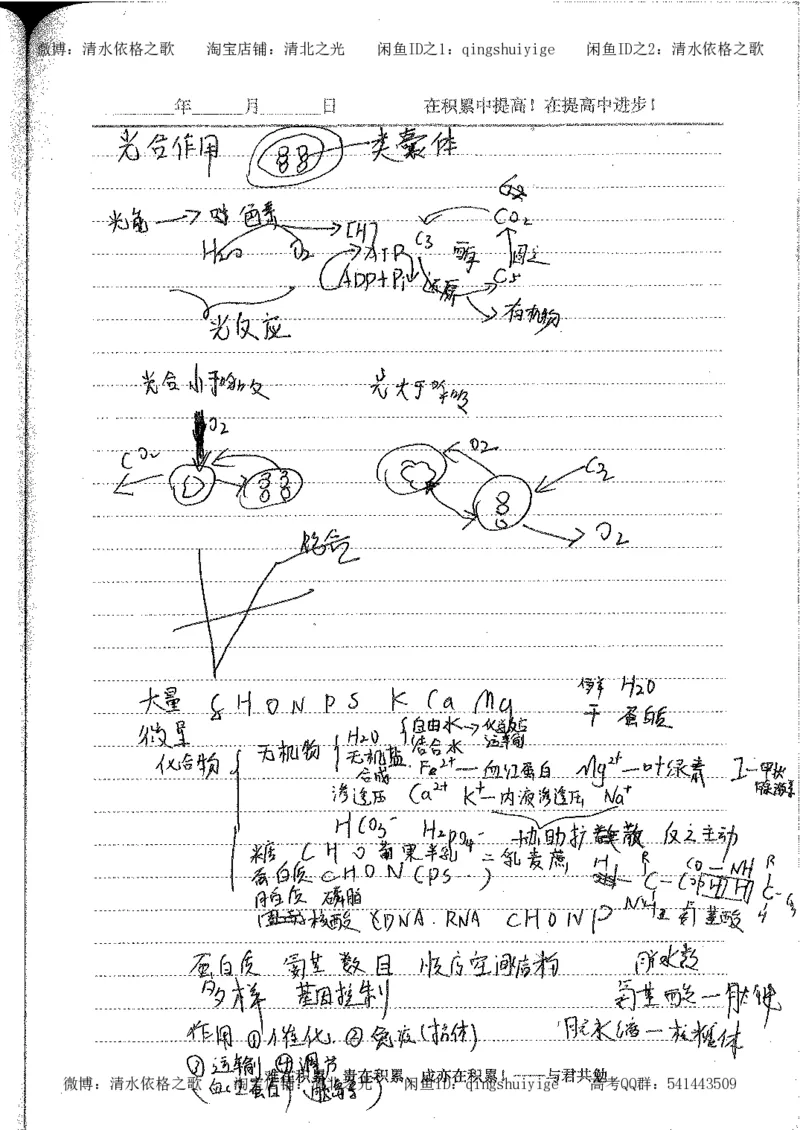 微博：清水依格之歌 淘宝店铺：清北之光 闲鱼ID之1：qingshuiyige 闲鱼ID之2：清水依格之歌
年 月 日 在积累中提高！在提高中进步！
光合作用 类囊体
光能 色素 [H] C3 酶 固定 CO2
H2O O2 ATP
ADP+Pi 还原 C5
有机物
光反应
光合小于呼吸 光大于呼吸
O2
CO2 O2
O2
饱合
大量 C H O N P S K Ca Mg 鲜 H2O
微量 干 蛋白质
化合物 无机物 H2O 自由水 化学反应 运输
结合水
无机盐
合成 Fe2+ — 血红蛋白 Mg2+ — 叶绿素 I — 甲状腺激素
渗透压 Ca2+ K+ — 内液渗透压 Na+
HCO3- H2PO4- 协助扩散 主动
糖 C H O 葡果半乳 二乳麦蔗
蛋白质 CHON (PS) H R CO — NH R
磷脂 C
核酸 DNA. RNA CHONP NH2 氨基酸 H
蛋白质 氨基 数目 顺序空间结构 脱水数
多样 基因控制 氨基酸 — 肽键
作用 ①催化 ②免疫(抗体) 脱水缩 — 核糖体
③运输 ④调节
(血红蛋白) (胰岛素)
难在积累，贵在积累，成亦在积累！——与君共勉
微博：清水依格之歌 淘宝店铺：清北之光 闲鱼ID：qingshuiyige 高考QQ群：541443509